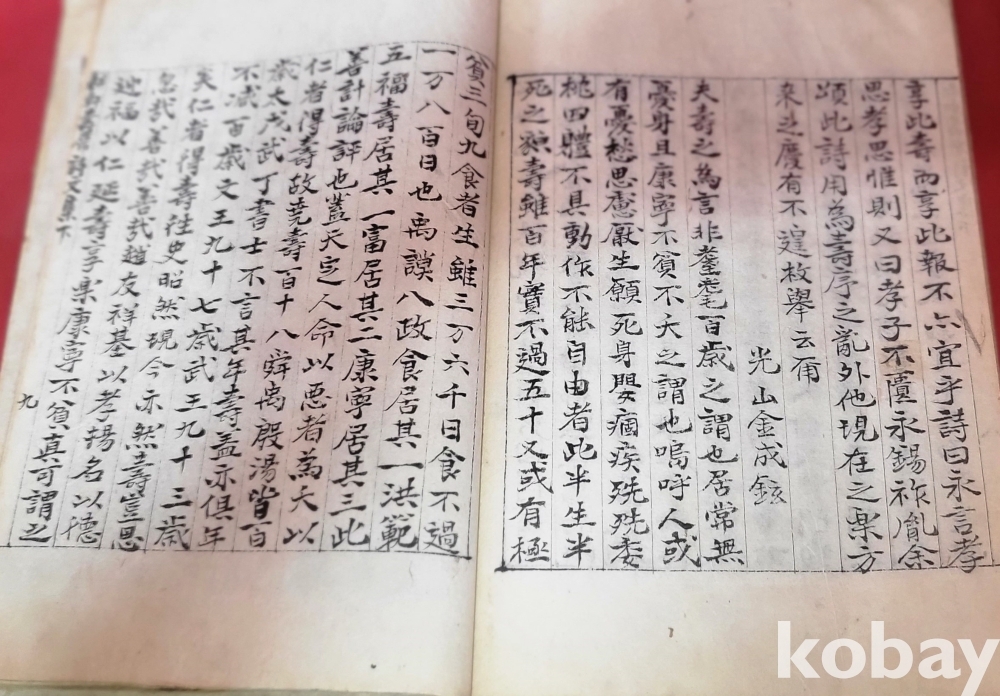 享此壽而享此報不亦宜乎詩曰永言孝
思孝思惟則又曰孝子不匱永錫祚胤余
頌此詩用為壽序之亂外他現在之樂方
來之慶有不遑枚舉云甭
光山金成鉉
夫壽之為言非耋耄百歲之謂也居常無
憂身且康寧不貧不夭之謂也嗚呼人或
有憂愁思慮厭生願死身嬰痼疾兟兟委
桃四體不具動作不能自由者此半生半
死之類壽雖百年實不過五十又或有極
貧三旬九食者生雖三万六千日食不過
一万八百日也禹謨八政食居其一洪範
五福壽居其一富居其二康寧居其三此
善計論評也蓋天定人命以惡者為夭以
仁者得壽故堯壽百十八舜禹殷湯皆百
歲太戊武丁書士不言其年壽盖亦俱年
不减百歲文王九十七歲武王九十三歲
矣仁者得壽往史昭然現今亦然壽豈思
忽哉善哉善哉趙友祥基以孝揚名以德
邀福以仁延壽享樂康寧不貧真可謂之
壽詩文集下
九
kobay